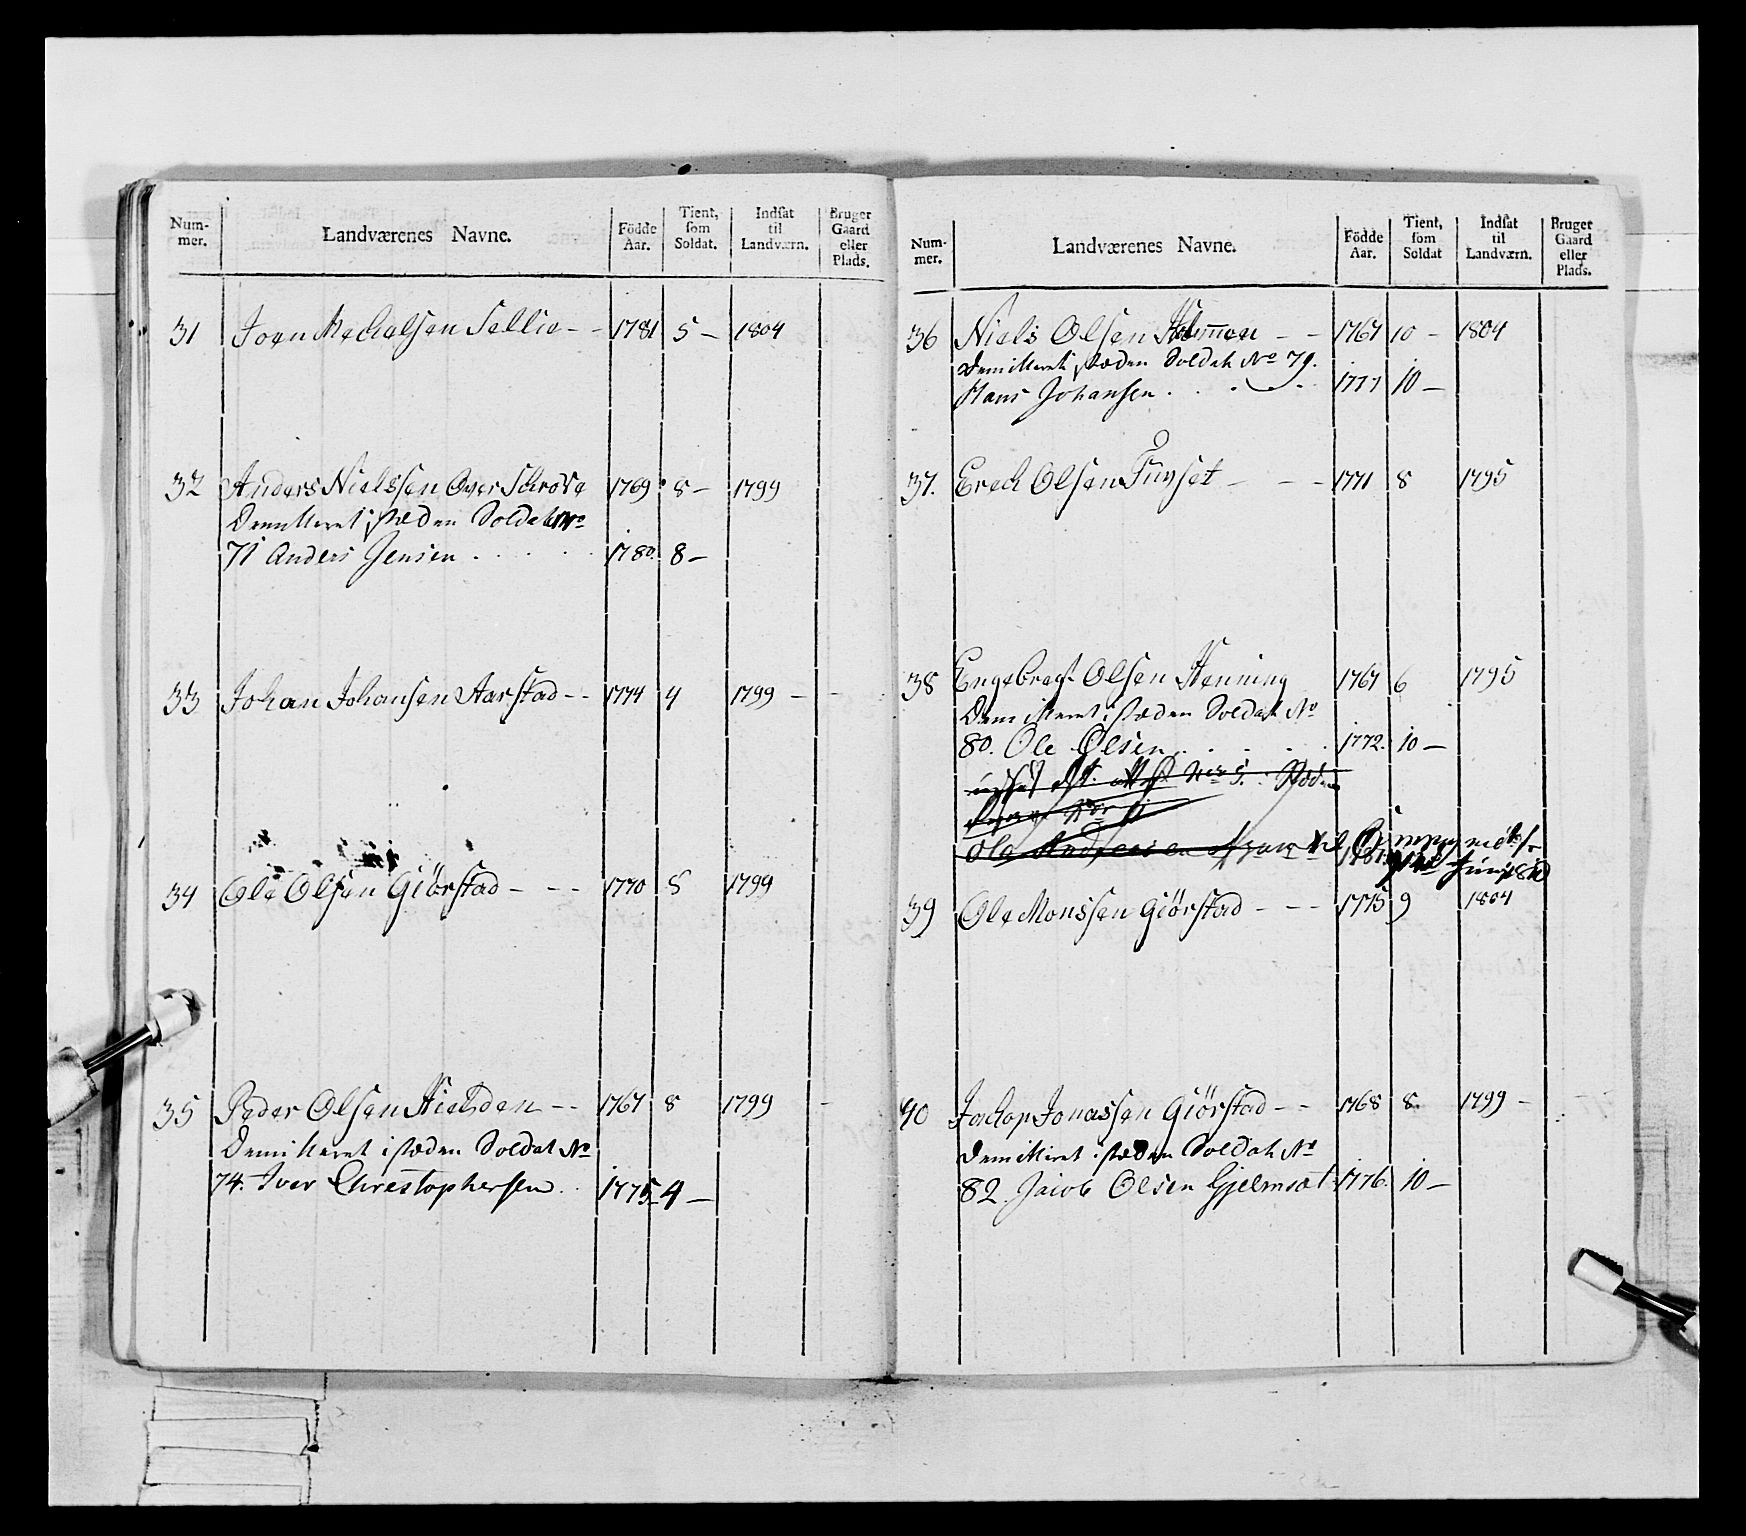 Num-mer. Landværenes Navne. Födde Aar. Tient, som Soldat. Indsat til Landværn. Bruger Gaard eller Plads.
31 Joen Mechelsen Sellie - - 1781 5 - 1804
32 Anders Nielssen Over Schrove 1769 8 - 1799
Demitteret i stæden Soldat No
71 Anders Jensen . . . . 1780. 8 -
33 Johan Johansen Aarstad - - 1774 4 1799 - -
34 Ole Olsen Giörstad - - - 1770 8 1799
35 Peder Olsen Hielden - - 1767 8 1799 -
Demitteret i stæden Soldat No
74. Iver Chrestophersen . . 1775 4 -
Num-mer. Landværenes Navne. Födde Aar. Tient, som Soldat Indsat til Landværn. Bruger Gaard eller Plads.
36 Niels Olsen - - 1767 10 - 1804
Demitteret i stæden Soldat No 79.
Hans Johansen . . . . 1777 10 -
37. Erech Olsen - - - 1771 8 1795
38 Engebregt Olsen Henning 1767 6 1795
Demitteret i stæden Soldat No
80. Ole Olsen . . . . 1772. 10 -
No 5.
Ole Andreasen
39 Ole Monssen Giörstad - - - 1775 9 1804
40 Jachop Jonassen Giörstad - - 1768 8 1799 -
Demitteret i stæden Soldat No
82 Jacob Olsen Gjelmsat 1776. 10 -